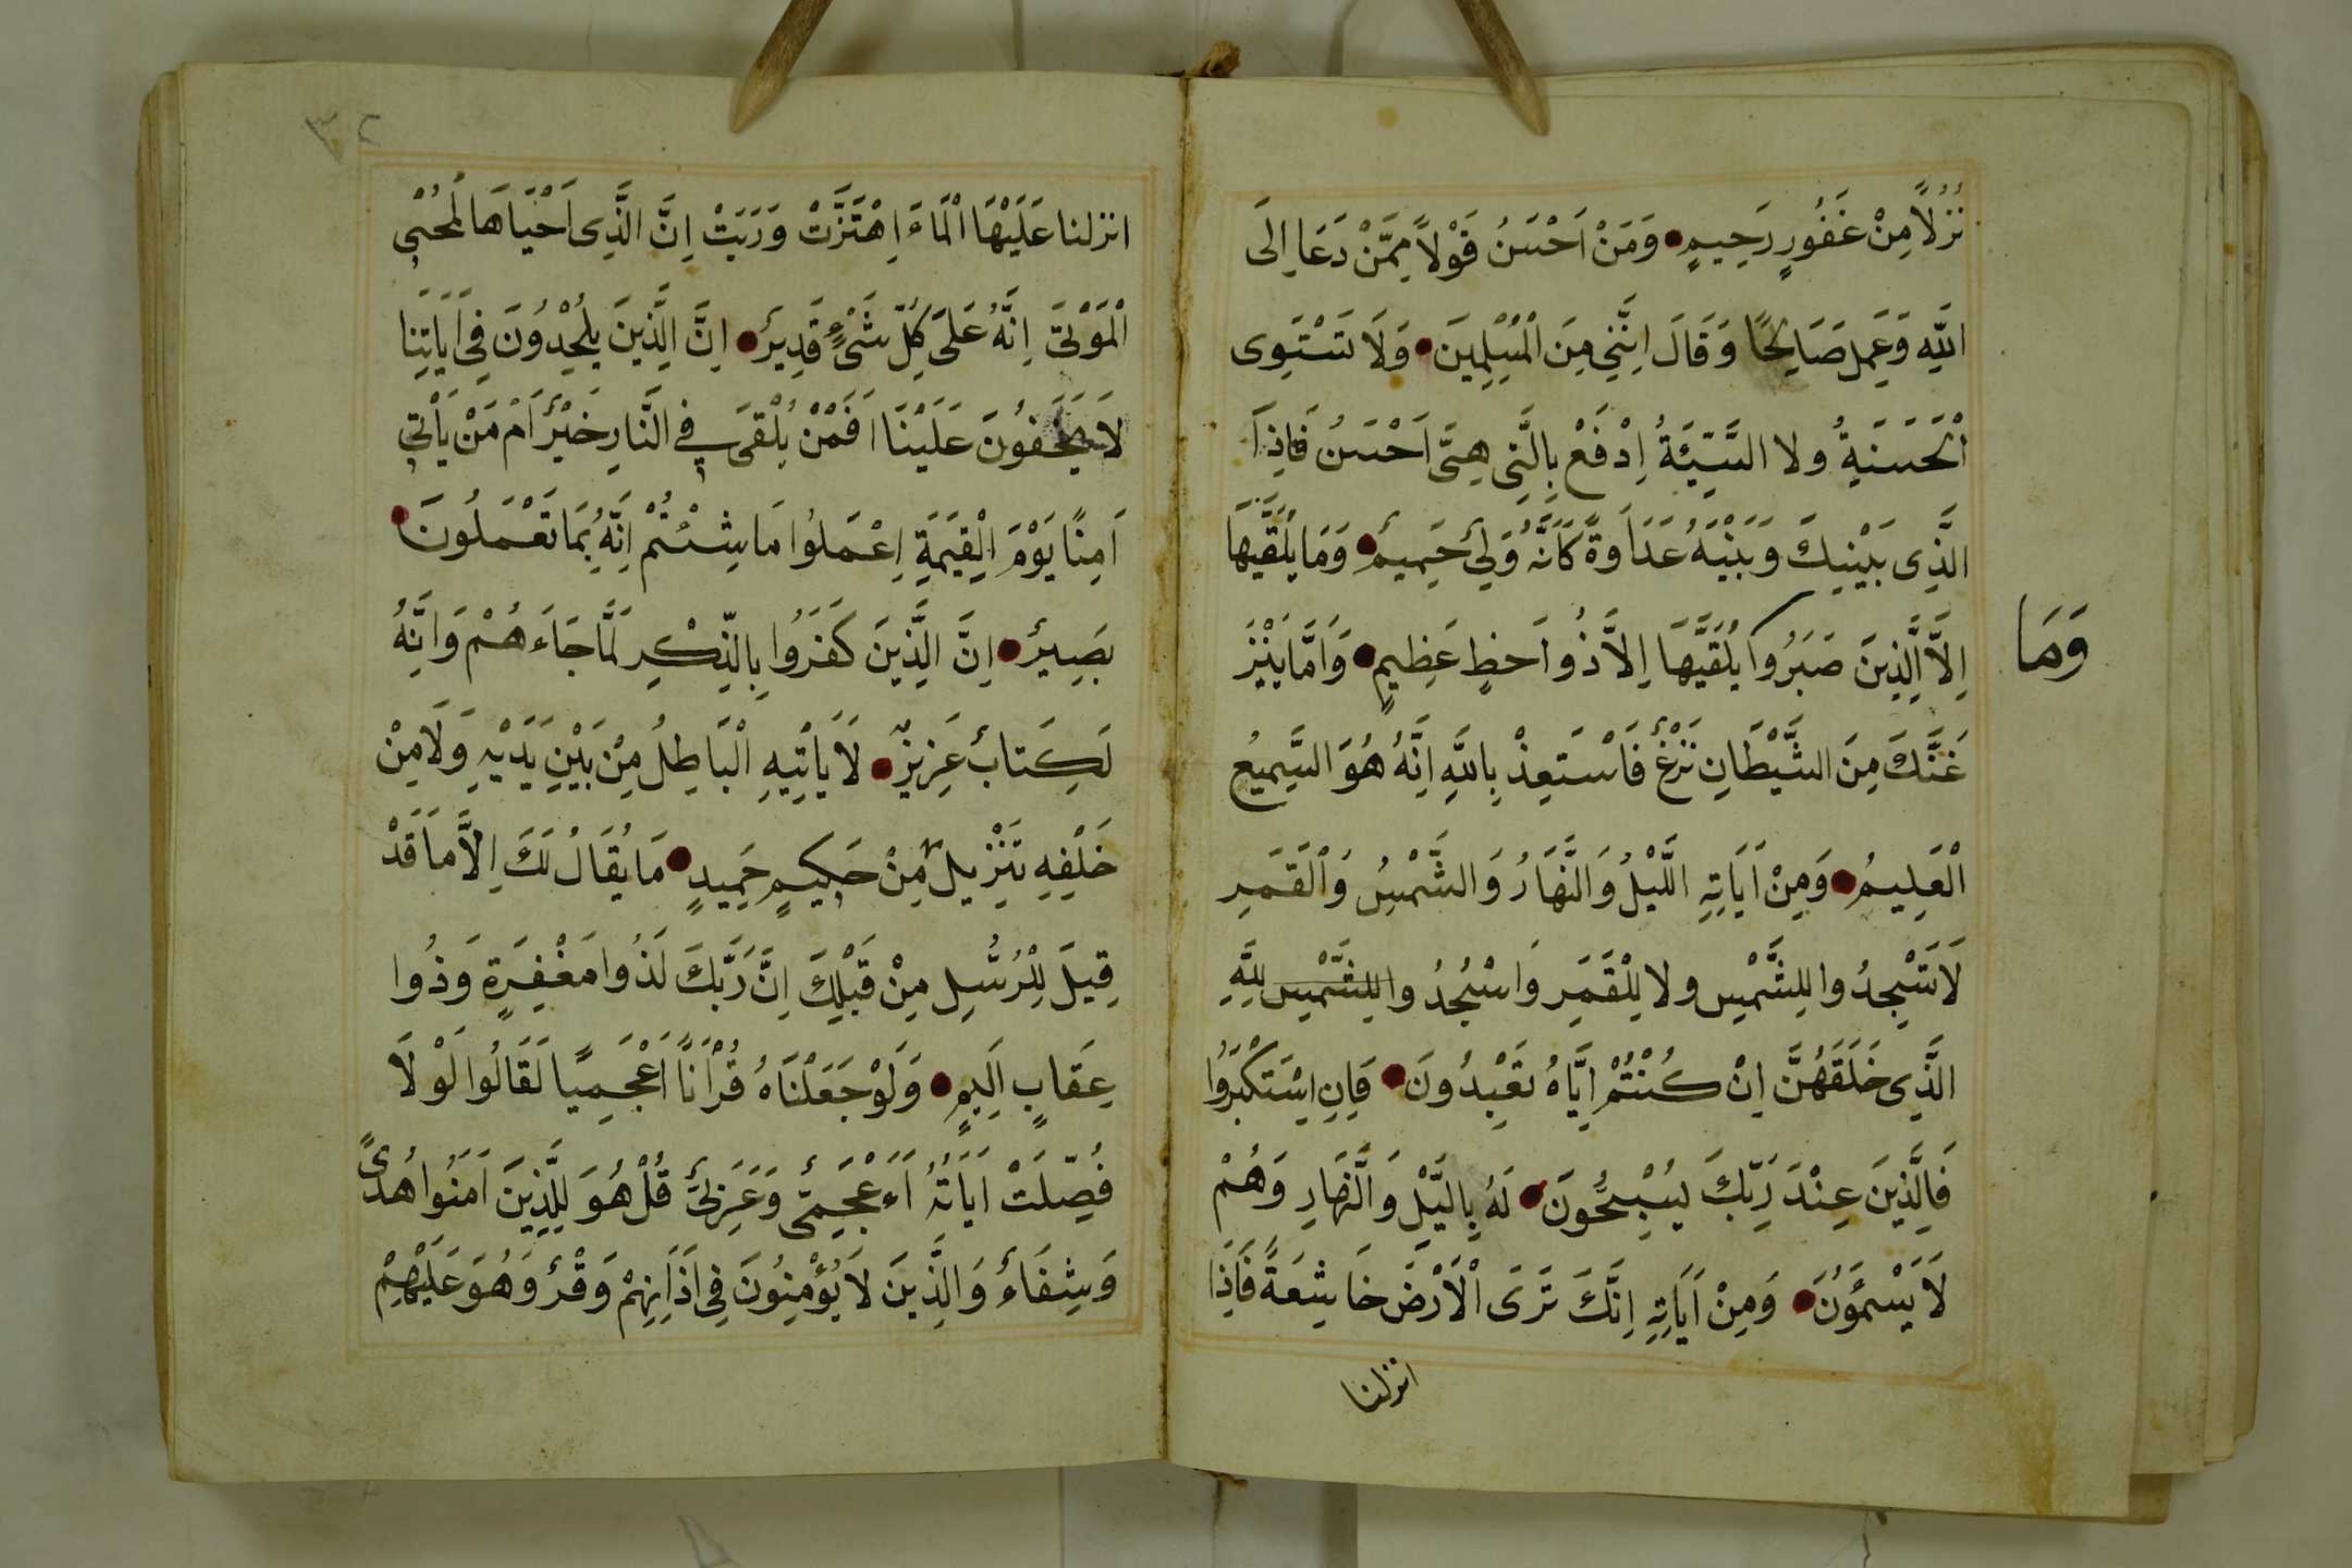 نُزُلًا مِنْ غَفُورٍ رَحِيمٍ وَمَنْ اَحْسَنُ قَوْلًا مِمَّنْ دَعَا اِلَى
اللّٰهِ وَعَمِلَ صَالِحًا وَقَالَ اِنَّنِي مِنَ الْمُسْلِمِينَ وَلَا تَسْتَوِى
الْحَسَنَةُ ولا السَّيِّئَةُ اِدْفَعْ بِالَّتِى هِىَ اَحْسَنُ فَاِذَا
الَّذِى بَيْنِكَ وَبَيْنَهُ عَدَاوَةً كَاَنَّهُ وَلِىٌ حَمِيمٌ وَمَا يُلَقَّيهَا
اِلَّا الَّذِينَ صَبَرُوا يُلَقَّيهَا اِلَّا ذُوا حَظٍ عَظِيمٍ وَاَمَّا يَنْزَ
وَمَا
غَنَّكَ مِنَ الشَّيْطَانِ نَزْغٌ فَاسْتَعِذْ بِاللّٰهِ اِنَّهُ هُوَ السَّمِيعُ
الْعَلِيمُ وَمِنْ اَيَاتِهِ اللَّيْلُ وَالنَّهَارُ وَالشَّمْسُ وَالْقَمَرِ
لَا تَسْجِدُوا لِلشَّمْسِ ولا لِلْقَمَرِ وَاسْجُدُوا لِلشَّمْسِ لِلّٰهِ
الَّذِى خَلَقَهُنَّ اِنْ كُنْتُمْ اِيَّاهُ تَعْبِدُونَ فَاِنِ اسْتَكْبَرُوا
فَالَّذِينَ عِنْدَ رَبِّكَ يُسْبِحُّونَ لَهُ بِالَّيْلِ وَالنَّهَارِ وَهُمْ
لَا يَسْمَؤُنَ وَمِنْ اَيَاتِهِ اِنَّكَ تَرَى الْاَرْضَ خَاشِعَةً فَاِذَا
انزلنا
٣٢
انزلنا عَلَيْهَا الْمَاءَ اِهْتَزَّتْ وَرَبَتْ اِنَّ الَّذِى اَحْيَاهَا لَمُحْىِ
الْمَوْتَى اِنَّهُ عَلَى كِلِّ شَىْءٍ قَدِيرٌ اِنَّ الَّذِينَ يُلْحِدُونَ فِى اَيَاتِنَا
لَا يَخْفُونَ عَلَيْنَا اَفَمَنْ يُلْقَى فِى النَّارِ خَيْرٌ اَمْ مَنْ يَاْتِى
اَمِنًا يَوْمَ الْقِيَمَةِ اِعْمَلُوا مَا شِئْتُمْ اِنَّهُ بِمَا تَعْمَلُونَ
بَصِيرٌ اِنَّ الَّذِينَ كَفَرُوا بِالذِّكْرِ لَمَّا جَاءَهُمْ وَاَنَّهُ
لَكِتَابٌ عَزِيزٌ لَا يَاْتِيهِ الْبَاطِلُ مِنْ بَيْنِ يَدَيْهِ وَلَا مِنْ
خَلْفِهِ تَنْزِيلٌ مِنْ حَكِيمٍ حَمِيدٍ مَا يُقَالُ لَكَ اِلَّا مَا قَدْ
قِيلَ لِلْرُسُّلِ مِنْ قَبْلِكَ اِنَّ رَبَّكَ لَذُوا مَغْفِرَةٍ وَذُوا
عِقَابٍ اَلِيمٍ وَلَوْ جَعَلْنَاهُ قُرْاَنًا اَعْجَمِيًا لَقَالُوا لَوْ لَا
فُصِّلَتْ اَيَاتَهُ اَءَعْجَمِىٌّ وَعَرَبِىٌّ قُلْ هُوَ لِلَّذِينَ اَمَنُوا هُدًى
وَشِفَاءٌ وَالَّذِينَ لَا يُؤْمِنُونَ فِى اَذَانِهِمْ وَقْرٌ وَهُوَ عَلَيْهِمْ